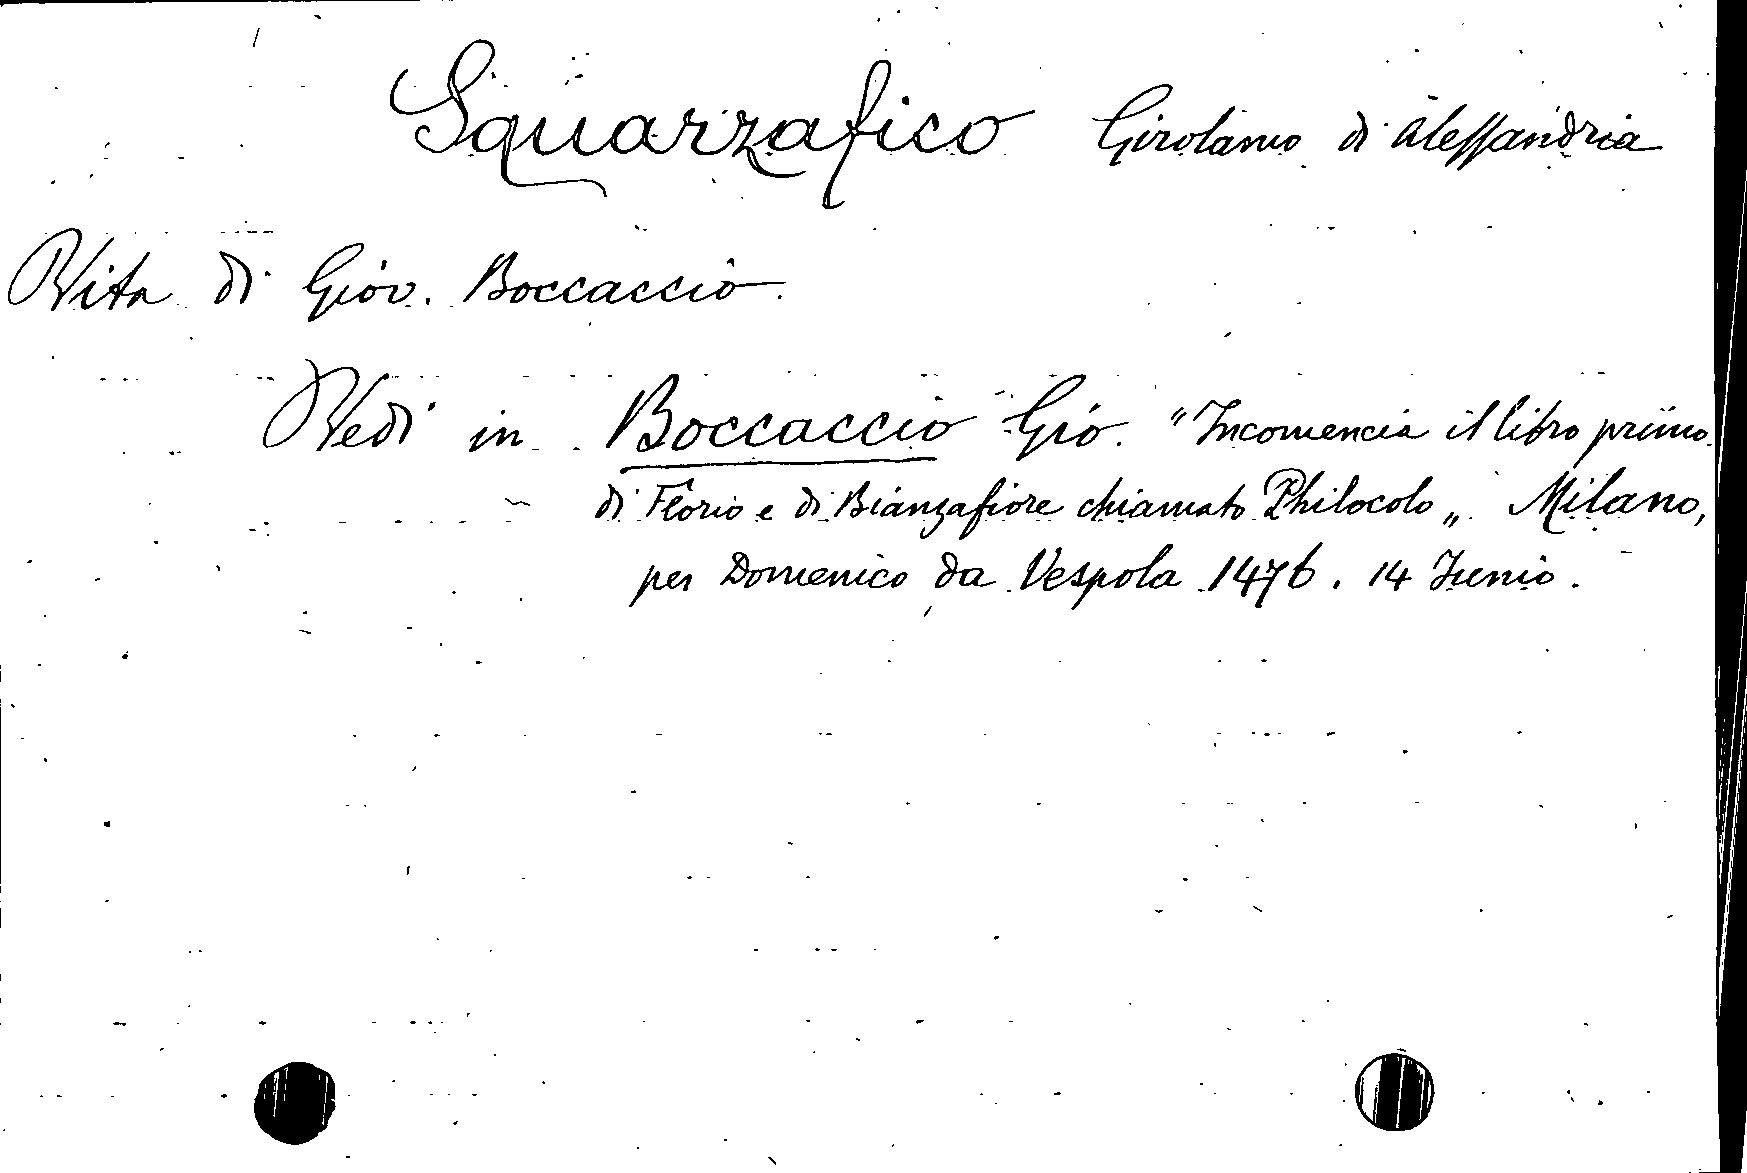 Squarzafico Girolamo di Alessandria
Vita di Giov. Boccaccio.
Vedi in Boccaccio Gio. "Incomencia il libro primo
di Florio e di Bianzafiore chiamato Philocolo„ Milano,
per Domenico da Vespola 1476. 14 Junio.